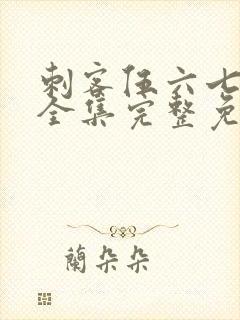 刺客伍六七
全集完整免
蘭朵朵